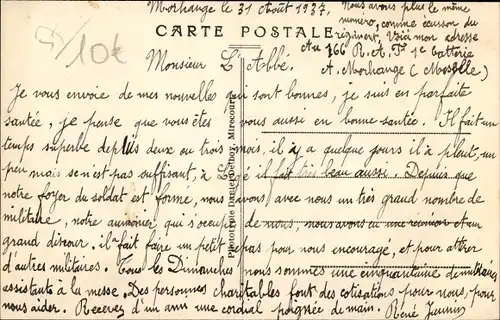 Morhange le 31 Août 1937.
Nous avons plus le même
numéro, comme écusson du
régiment, Voici mon adresse
CARTE POSTALE
Au 166 R.A.P 1e batterie
A. Morhange (Moselle)
10€
Monsieur L'Abbé.
Je vous envoie de mes nouvelles qui sont bonnes, je suis en parfaite
santée, je pense que vous êtes vous aussi en bonne santée. Il fait un
temps superbe depuis deux ou trois mois, il y a quelque jours il à pleut, un
peu mais se n'est pas suffisant, à il fait très beau aussi. Depuis que
notre foyer du soldat est formé, nous avons, avec nous un très grand nombre de
militaire, notre aumônier, qui s'occupe de nous, nous avons eu une réunion et un
grand discour, il fait faire un petit repas pour nous encouragé, et pour attirer
d'autres militaires. Tous les Dimanches nous sommes une cinquantaine de militaires
assistants à la messe. Des personnes charitables font des cotisations pour nous, pour
nous aider. Recevez d'un ami une cordial poignée de main. René
Phototypie Daniel Delboy, Mirecourt